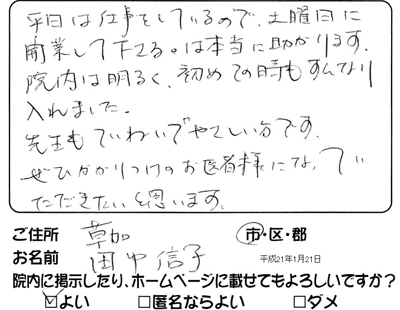 平日は仕事をしているので、土曜日に
開業して下さるのは本当に助かります。
院内は明るく、初めての時もすんなり
入れました。
先生もていねいでやさしい方です。
ぜひかかりつけのお医者様になってい
ただきたいと思います。
ご住所 草加 市・区・郡
お名前 田中信子 平成21年1月21日
院内に掲示したり、ホームページに載せてもよろしいですか?
☑よい □匿名ならよい □ダメ